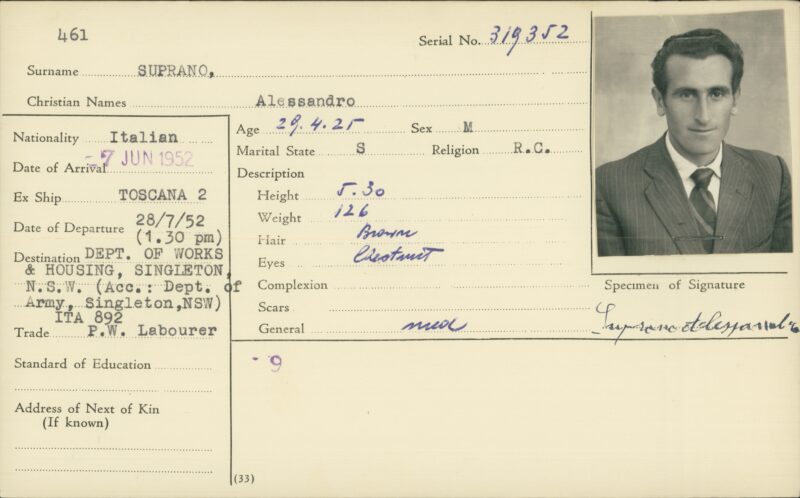 461
Serial No. 319352
Surname SUPRANO,
Christian Names Alessandro
Nationality Italian
Date of Arrival -7 JUN 1952
Ex Ship TOSCANA 2
Date of Departure 28/7/52
(1.30 pm)
Destination DEPT. OF WORKS
& HOUSING, SINGLETON,
N.S.W. (Acc.: Dept. of
Army, Singleton,NSW)
ITA 892
Trade P.W. Labourer
Standard of Education
Address of Next of Kin
(If known)
Age 29.4.25 Sex M
Marital State S Religion R.C.
Description
Height 5.30
Weight 126
Hair Brown
Eyes Chestnut
Complexion
Scars
General med
- 9
(33)
Specimen of Signature
Suprano Alessandro